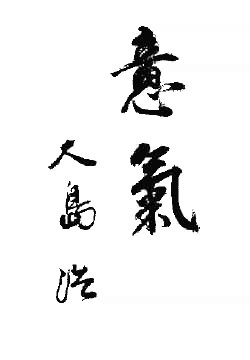 意氣
大島浩